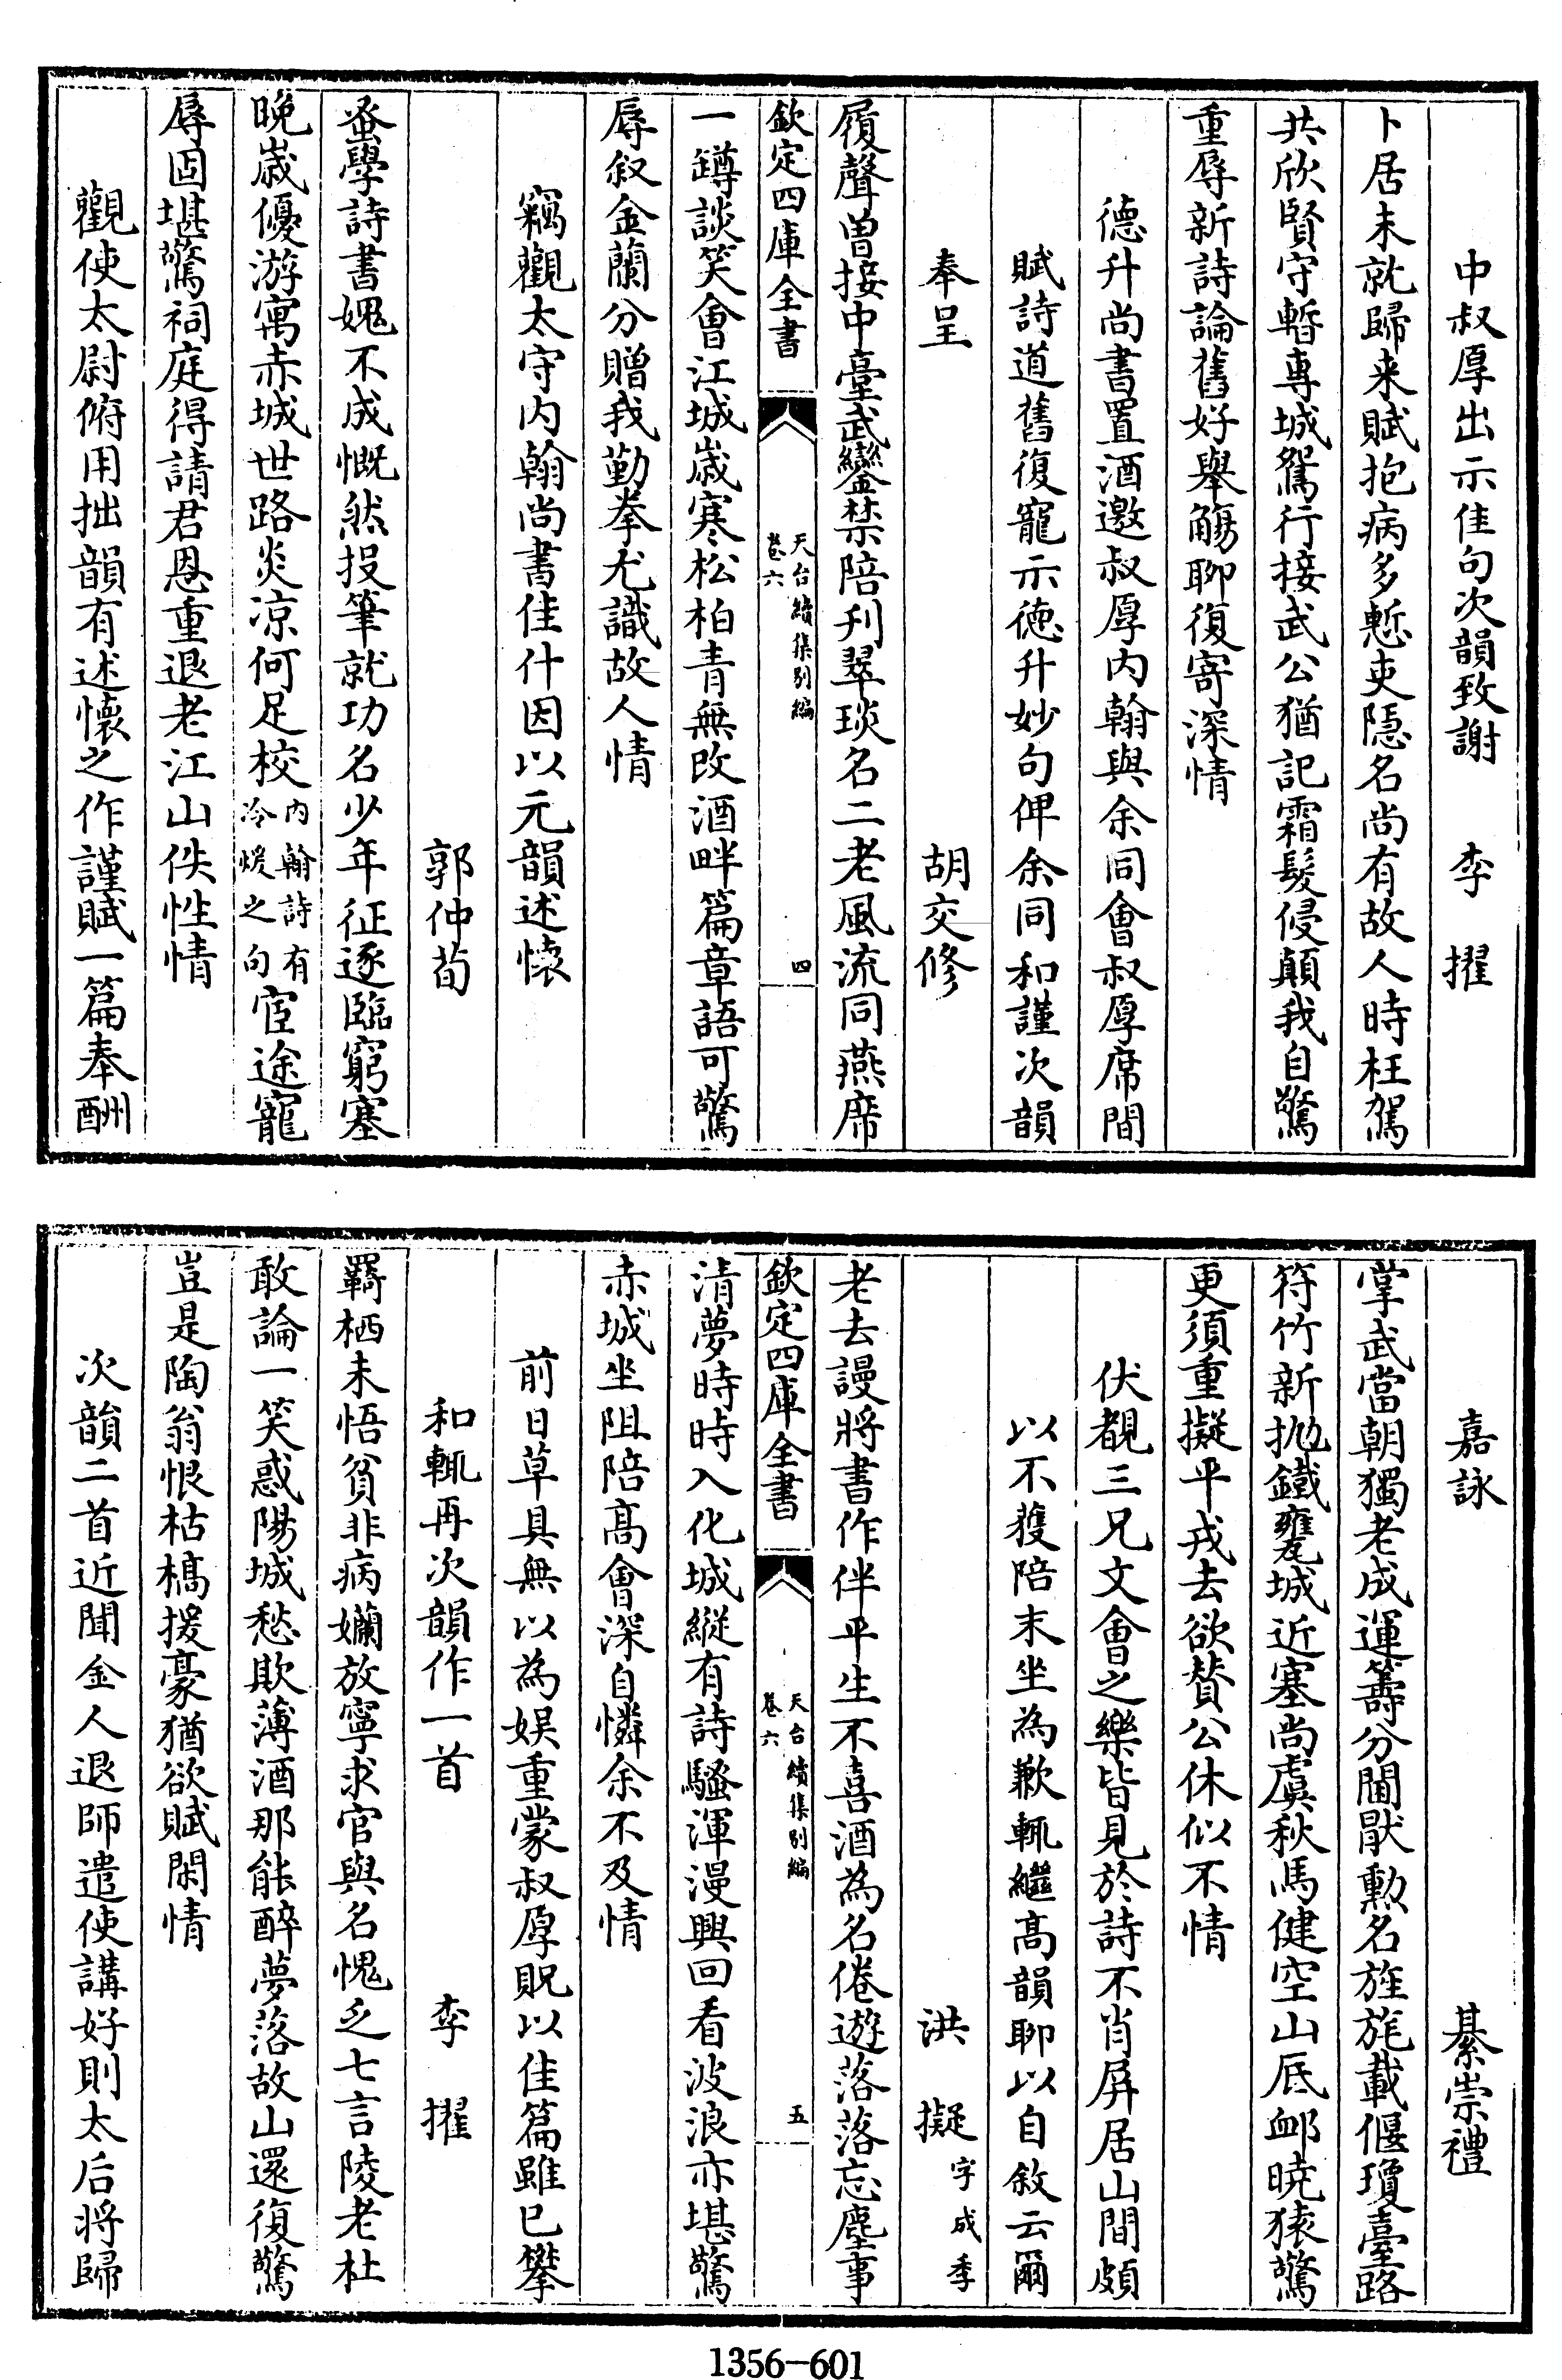 中叔厚出示佳句次韻致謝　李擢
卜居未就歸来賦抱病多慙吏隠名尚有故人時枉駕
共欣賢守暫專城鴛行接武公猶記霜髪侵顛我自驚
重辱新詩論舊好舉觴聊復寄深情
德升尚書置酒邀叔厚内翰與余同會叔厚席間
賦詩道舊復寵示德升妙句俾余同和謹次韻
奉呈　胡交修
履聲曽接中臺武鑾禁陪刋翠琰名二老風流同燕席
欽定四庫全書　天台續集别編卷六　四
一罇談笑會江城嵗寒松柏青無改酒畔篇章語可驚
辱叙金蘭分贈我勤拳尤識故人情
竊觀太守内翰尚書佳什因以元韻述懐
郭仲荀
蚤學詩書媿不成慨然投筆就功名少年征逐臨窮塞
晚嵗優游寓赤城世路炎凉何足校内翰詩有冷煖之句宦途寵
辱固堪驚祠庭得請君恩重退老江山佚性情
觀使太尉俯用拙韻有述懐之作謹賦一篇奉酬
嘉詠　綦崇禮
掌武當朝獨老成運籌分閫厭勲名旌旄載偃瓊臺路
符竹新抛鐵甕城近塞尚虞秋馬健空山厎䘏曉猿驚
更須重擬平戎去欲賛公休似不情
伏覩三兄文會之樂皆見於詩不肖屏居山間頗
以不獲陪末坐為歉輒繼髙韻聊以自敘云爾
洪擬字成季
老去謾將書作伴平生不喜酒為名倦遊落落忘塵事
欽定四庫全書　天台續集别編卷六　五
清夢時時入化城縦有詩騷渾漫興回看波浪亦堪驚
赤城坐阻陪髙會深自憐余不及情
前日草具無以為娱重蒙叔厚貺以佳篇雖已攀
和輒再次韻作一首　李擢
羇栖未悟貧非病嬾放寧求官與名愧乏七言陵老杜
敢論一笑惑陽城愁欺薄酒那能醉夢落故山還復驚
豈是陶翁恨枯槁援豪猶欲賦閑情
次韻二首近聞金人退師遣使講好則太后将歸
1356—601